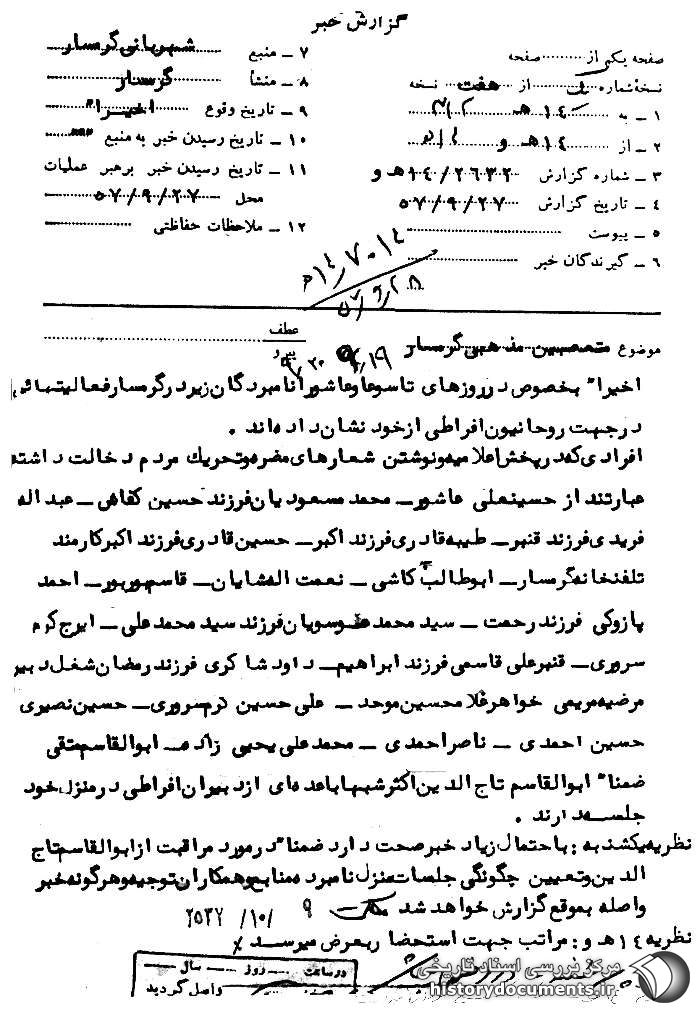 گزارش خبر
صفحه یکم از صفحه
نسخه شماره یک از هفت نسخه
۱ ـ به ۱۴ هـ
۲ ـ از ۱۴ هـ و
۳ ـ شماره گزارش ۱۴/۲۶۳۲ هـ و
۴ ـ تاریخ گزارش ۵۷/۹/۲۷
۵ ـ پیوست
۶ ـ گیرندگان خبر
۷ ـ منبع شهربانی گرمسار
۸ ـ منشأ گرمسار
۹ ـ تاریخ وقوع اخیراً
۱۰ ـ تاریخ رسیدن خبر به منبع
۱۱ ـ تاریخ رسیدن خبر برهبر عملیات
محل ۵۷/۹/۲۷
۱۲ ـ ملاحظات حفاظتی
موضوع متعصبین مذهبی گرمسار
عطف
پیرو
اخیراً بخصوص در روزهای تاسوعا و عاشورا نامبردگان زیر در گرمسار فعالیتهائی
در جهت روحانیون افراطی از خود نشان داده اند .
افرادی که در پخش اعلامیه و نوشتن شعارهای مضره و تحریک مردم دخالت داشته
عبارتند از حسینعلی عاشور ـ محمد مسعودیان فرزند حسین کفاهی ـ عبداله
فریدی فرزند قنبر ـ طیبه قادری فرزند اکبر ـ حسین قادری فرزند اکبر کارمند
تلفنخانه گرمسار ـ ابوطالب کاشی ـ نعمت اله شایان ـ قاسم پورپور ـ احمد
پازوکی فرزند رحمت ـ سید محمد موسویان فرزند سید محمد علی ـ ایرج کرم
سروری ـ قنبرعلی قاسمی فرزند ابراهیم ـ داود شاکری فرزند رمضان شغل دبیر
مرضیه مریمی خواهر غلامحسین موحد ـ علی حسین کرم سروری ـ حسین نصیری
حسین احمدی ـ ناصر احمدی ـ محمد علی یحیی زاده ـ ابوالقاسم متقی
ضمناً ابوالقاسم تاج الدین اکثر شبها با عده ای از دبیران افراطی در منزل خود
جلسه دارند .
نظریه یکشنبه : باحتمال زیاد خبر صحت دارد ضمناً در مورد مراقبت از ابوالقاسم تاج
الدین و تعیین چگونگی جلسات منزل نامبرده منابع و همکاران توجیه و هرگونه خبر
واصله بموقع گزارش خواهد شد ۹ /۱۰/ ۲۵۳۷
نظریه ۱۴ هـ و : مراتب جهت استحضار بعرض میرسد
در ساعت روز سال
واصل گردید
مرکز بررسی اسناد تاریخی
historydocuments.ir